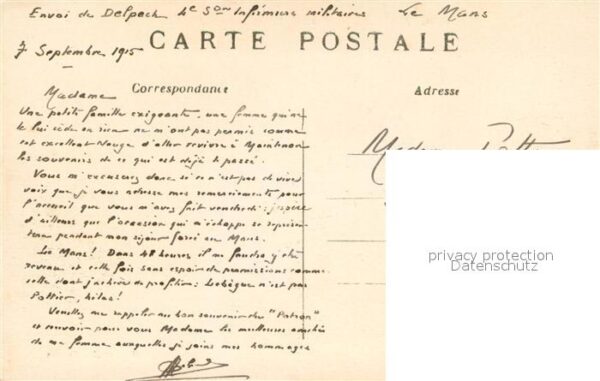 Envoi de Delpech 4e Son Infirmiers militaires Le Mans
7 Septembre 1915
CARTE POSTALE
Correspondance
Adresse
Madame
Une petite famille exigeante, une femme qui ne
le lui cède en rien ne m'ont pas permis comme
est excellent d'aller revivre à Maintenon
les souvenirs de ce qui est déjà passé.
Vous m'excuserez donc si ce n'est pas de vive
voix que je vous adresse mes remerciements pour
l'accueil que vous m'avez fait vendredi : j'espère
d'ailleurs que l'occasion qui m'échappe se représen-
tera pendant mon séjour forcé au Mans.
Le Mans ! Dans 48 heures il me faudra y être
revenu et cette fois sans espoir de permissions comme
celle dont j'achève de profiter : Lebègue n'est pas
Pottier, hélas !
Veuillez me rappeler au bon souvenir du "Patron"
et recevoir pour vous Madame les meilleures amitiés
de ma femme auxquelles je joins mes hommages
privacy protection
Datenschutz